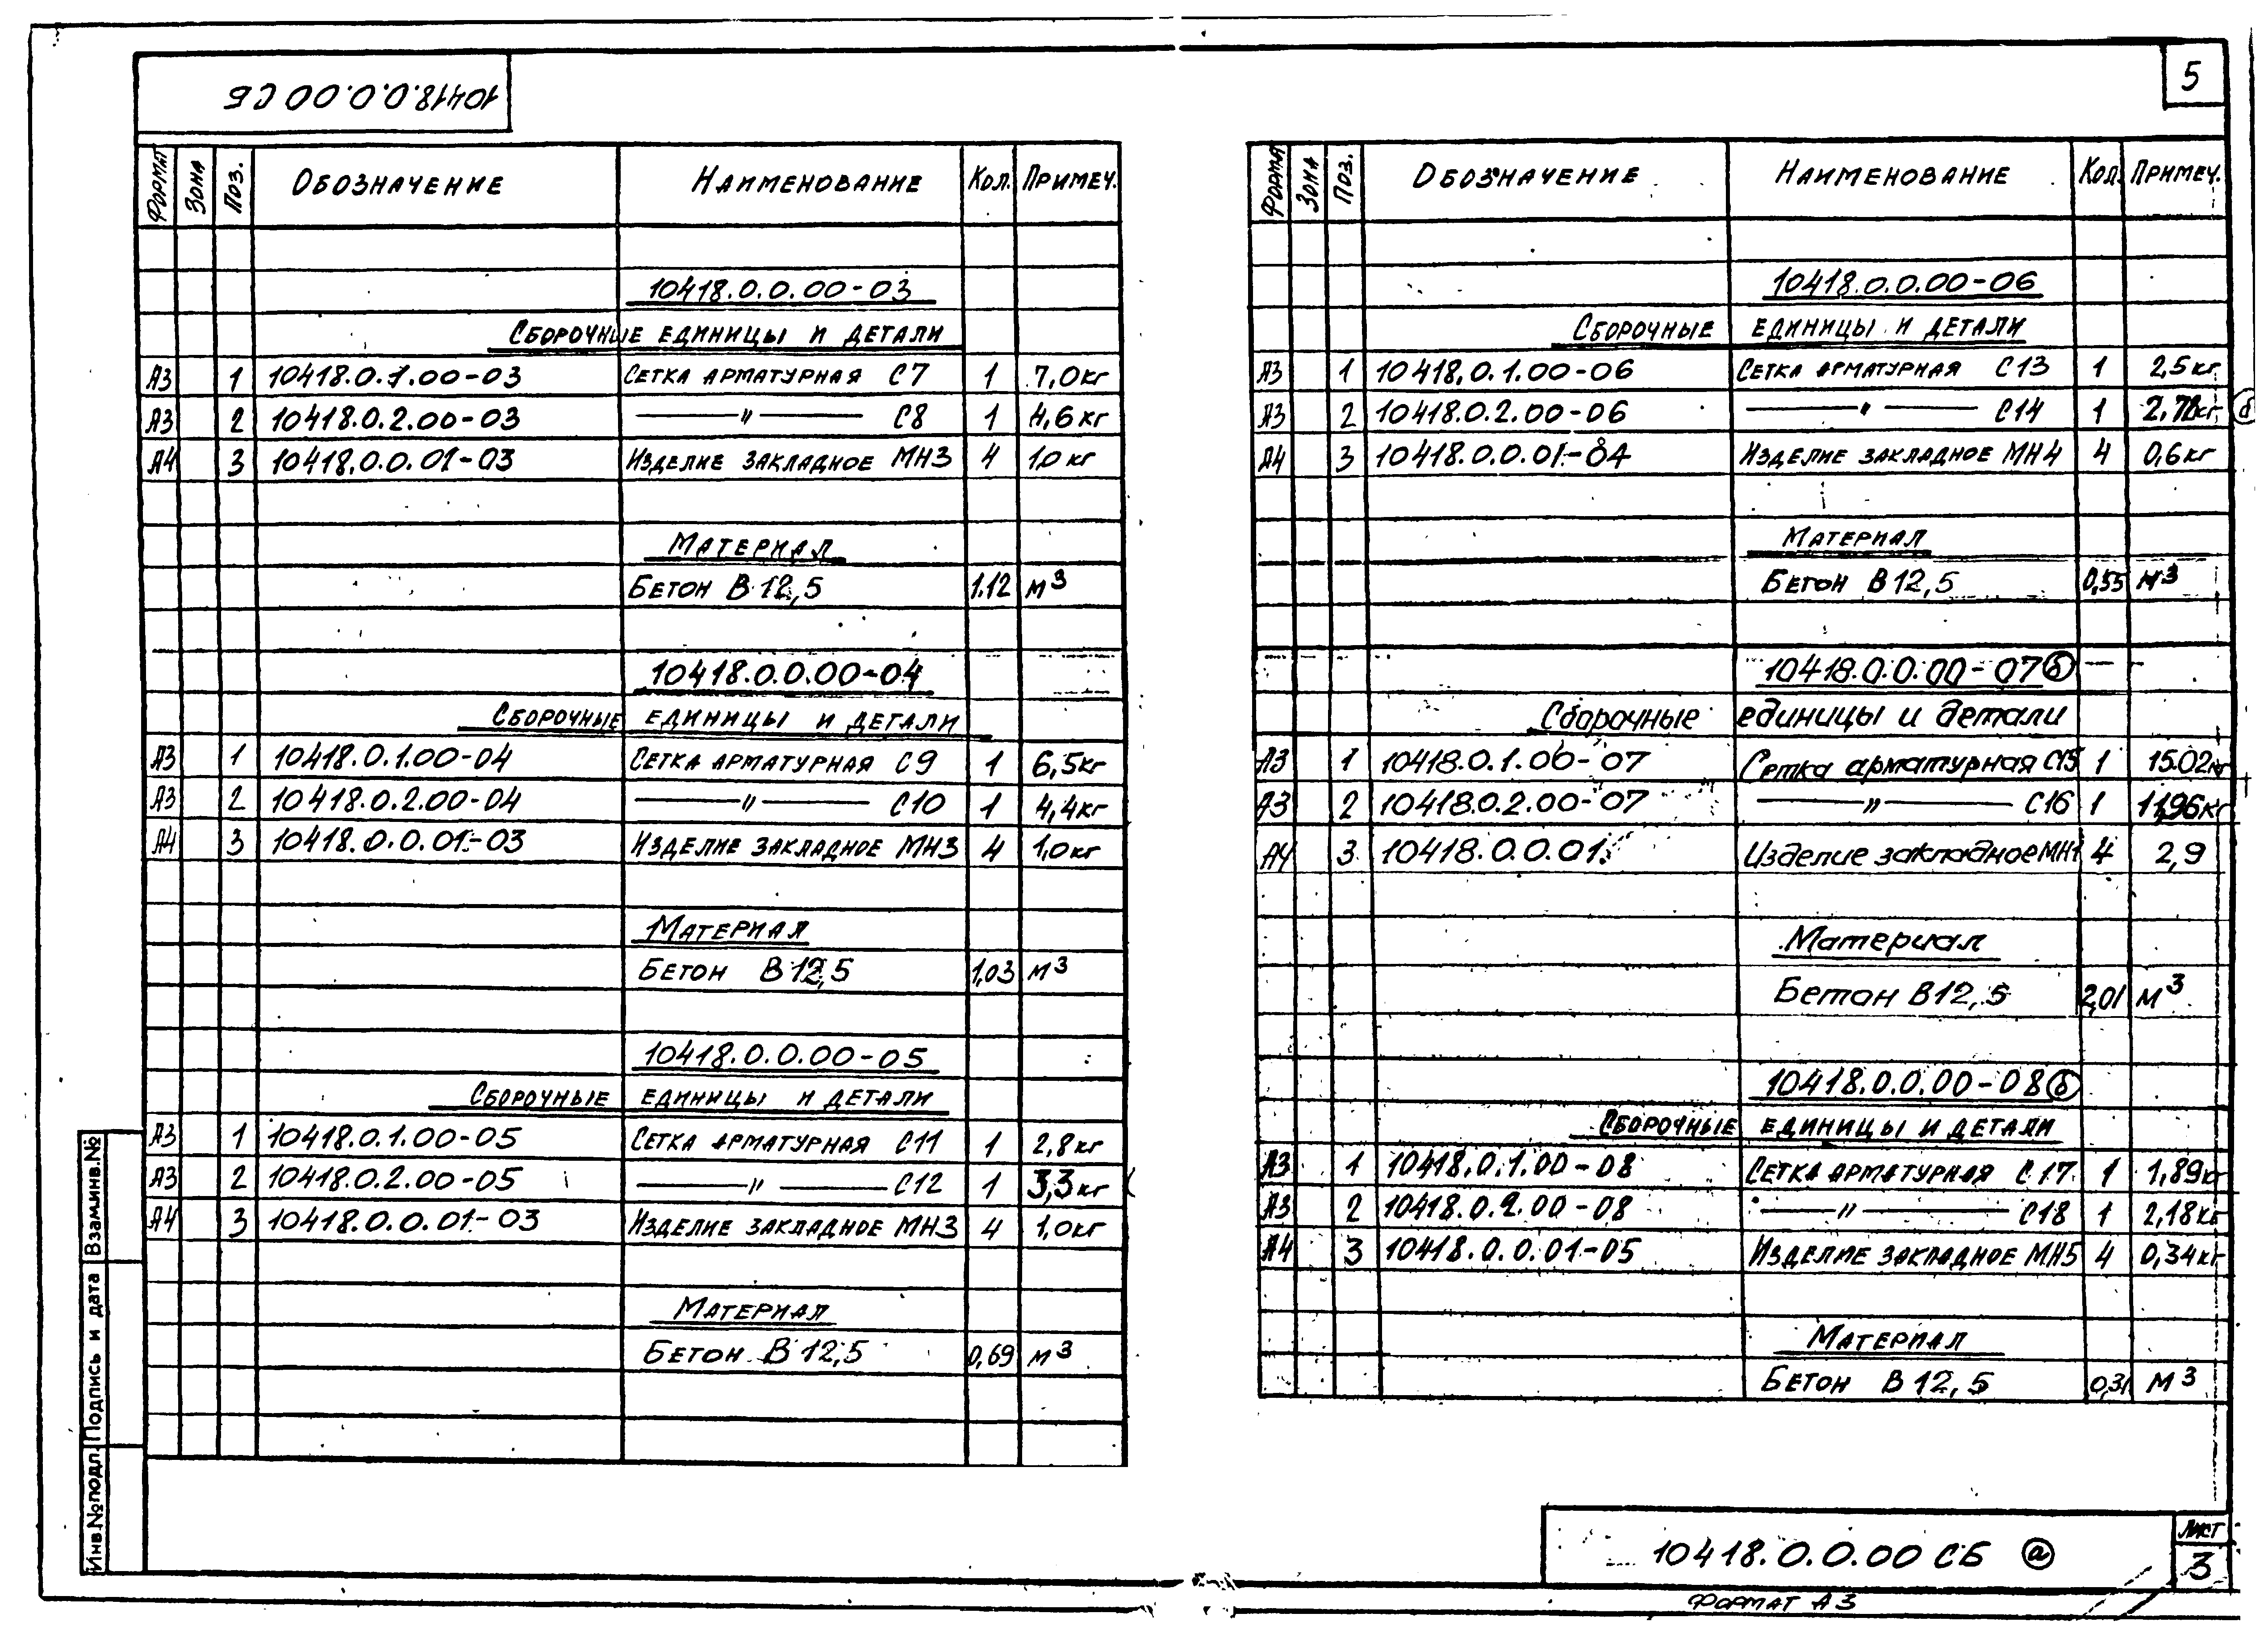 10418.0.0.00 СБ
5
ФОРМАТ ЗОНА ПОЗ. ОБОЗНАЧЕНИЕ НАИМЕНОВАНИЕ КОЛ. ПРИМЕЧ.
10418.0.0.00-03
СБОРОЧНЫЕ ЕДИНИЦЫ И ДЕТАЛИ
А3 1 10418.0.1.00-03 СЕТКА АРМАТУРНАЯ С7 1 7,0кг
А3 2 10418.0.2.00-03 —— " —— С8 1 4,6кг
А4 3 10418.0.0.01-03 ИЗДЕЛИЕ ЗАКЛАДНОЕ МН3 4 1.0 кг
МАТЕРИАЛ
БЕТОН В 12,5 1.12 м3
10418.0.0.00-04
СБОРОЧНЫЕ ЕДИНИЦЫ И ДЕТАЛИ
А3 1 10418.0.1.00-04 СЕТКА АРМАТУРНАЯ С9 1 6,5кг
А3 2 10418.0.2.00-04 —— " —— С10 1 4,4кг
А4 3 10418.0.0.01-03 ИЗДЕЛИЕ ЗАКЛАДНОЕ МН3 4 1,0кг
МАТЕРИАЛ
БЕТОН В 12,5 1,03 м3
10418.0.0.00-05
СБОРОЧНЫЕ ЕДИНИЦЫ И ДЕТАЛИ
А3 1 10418.0.1.00-05 СЕТКА АРМАТУРНАЯ С11 1 2,8кг
А3 2 10418.0.2.00-05 —— " —— С12 1 3,3кг
А4 3 10418.0.0.01-03 ИЗДЕЛИЕ ЗАКЛАДНОЕ МН3 4 1,0кг
МАТЕРИАЛ
БЕТОН В 12,5 0,69 м3
ФОРМАТ ЗОНА ПОЗ. ОБОЗНАЧЕНИЕ НАИМЕНОВАНИЕ КОЛ. ПРИМЕЧ.
10418.0.0.00-06
СБОРОЧНЫЕ ЕДИНИЦЫ И ДЕТАЛИ
А3 1 10418.0.1.00-06 СЕТКА АРМАТУРНАЯ С13 1 2,5кг
А3 2 10418.0.2.00-06 —— " —— С14 1 кг б
А4 3 10418.0.0.01-04 ИЗДЕЛИЕ ЗАКЛАДНОЕ МН4 4 0,6кг
МАТЕРИАЛ
БЕТОН В 12,5 0,55 м3
10418.0.0.00-07 б
Сборочные единицы и детали
А3 1 10418.0.1.00-07 Сетка арматурная С15 1 15.02кг
А3 2 10418.0.2.00-07 —— " —— С16 1 11,96кг
А4 3 10418.0.0.01 Изделие закладное МН1 4 2,9
Материал
Бетон В12,5 2,01 м3
10418.0.0.00-08 б
СБОРОЧНЫЕ ЕДИНИЦЫ И ДЕТАЛИ
А3 1 10418.0.1.00-08 СЕТКА АРМАТУРНАЯ С17 1 1,89кг
А3 2 10418.0.2.00-08 —— " —— С18 1 2,18кг
А4 3 10418.0.0.01-05 ИЗДЕЛИЕ ЗАКЛАДНОЕ МН5 4 0,34кг
МАТЕРИАЛ
БЕТОН В 12,5 0,31 м3
Инв.№подл. Подпись и дата Взам.инв.№
10418.0.0.00 СБ а
ЛИСТ
3
ФОРМАТ А3